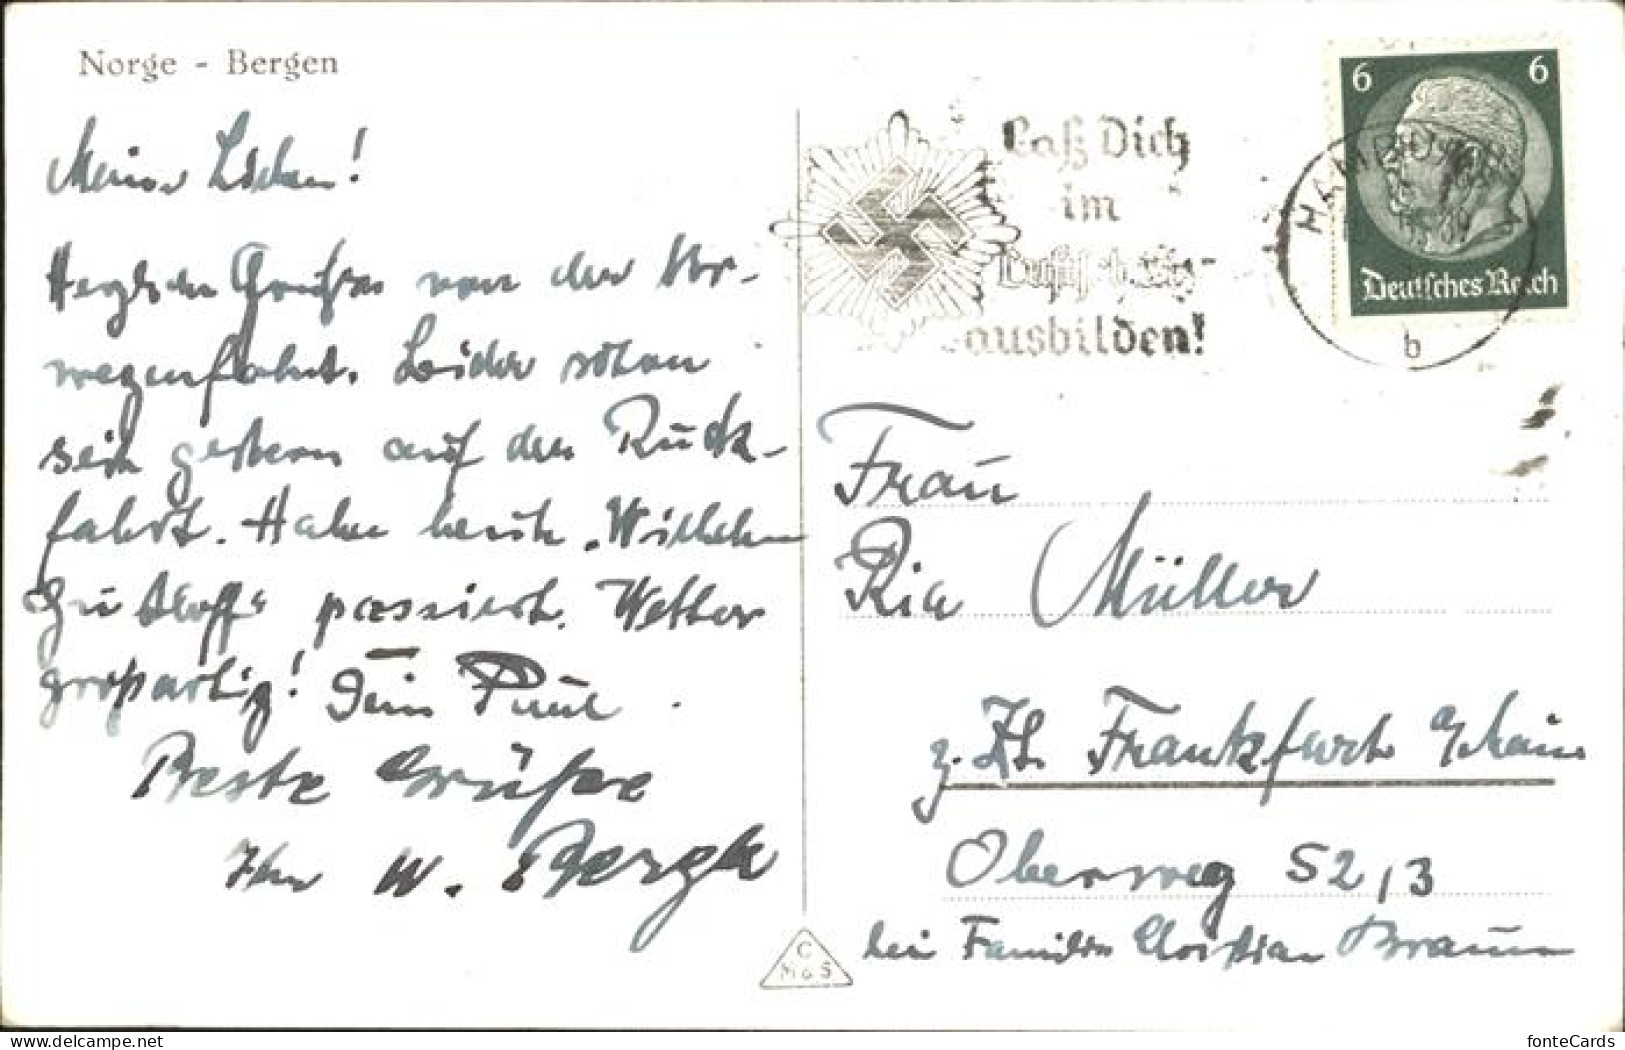 Norge - Bergen
Meine Lieben!
Herzlichen Grüße von der Nor-
wegenfahrt. Leider schon
seit gestern auf der Rück-
fahrt. Haben heute „Wilhelm
Gustloff" passiert. Wetter
großartig! Dein Paul
Beste Grüße
Ihr W. Bergk
Laß Dich
im
Luftschutz
ausbilden!
HAMBURG
b
6 6
Deutsches Reich
Frau
Ria Müller
z. Zt. Frankfurt a/Main
Oberweg 52,3
bei Familie Christian Braun
C
M & S
fonteCards
www.delcampe.net